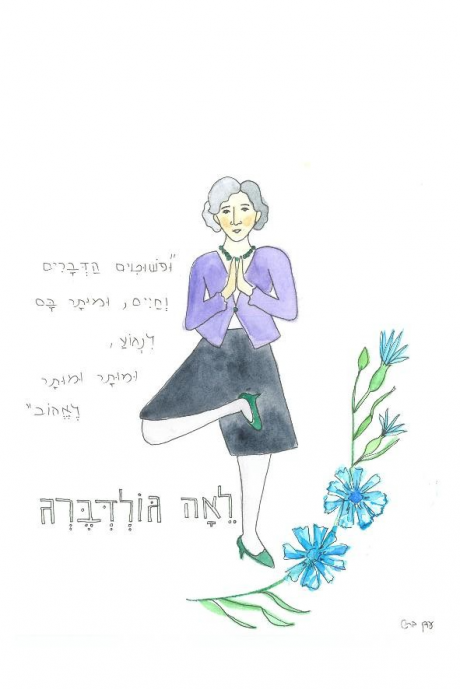 "וּפְשׁוּטִים הַדְּבָרִים
וְחַיִּים, וּמֻיתָּר בָּם
לִנְגֹועַ,
וּמוּתָּר וּמוּתָּר
לֶאֱהוֹב"
לֵאָה גּוֹלְדְבֶּרְג